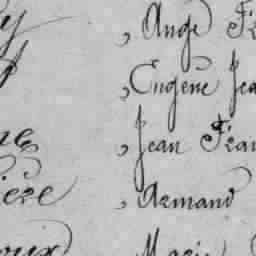 y , Ange Fr
, Eugène Jea
ne , Jean Fran
ière , Armand
oux Marie